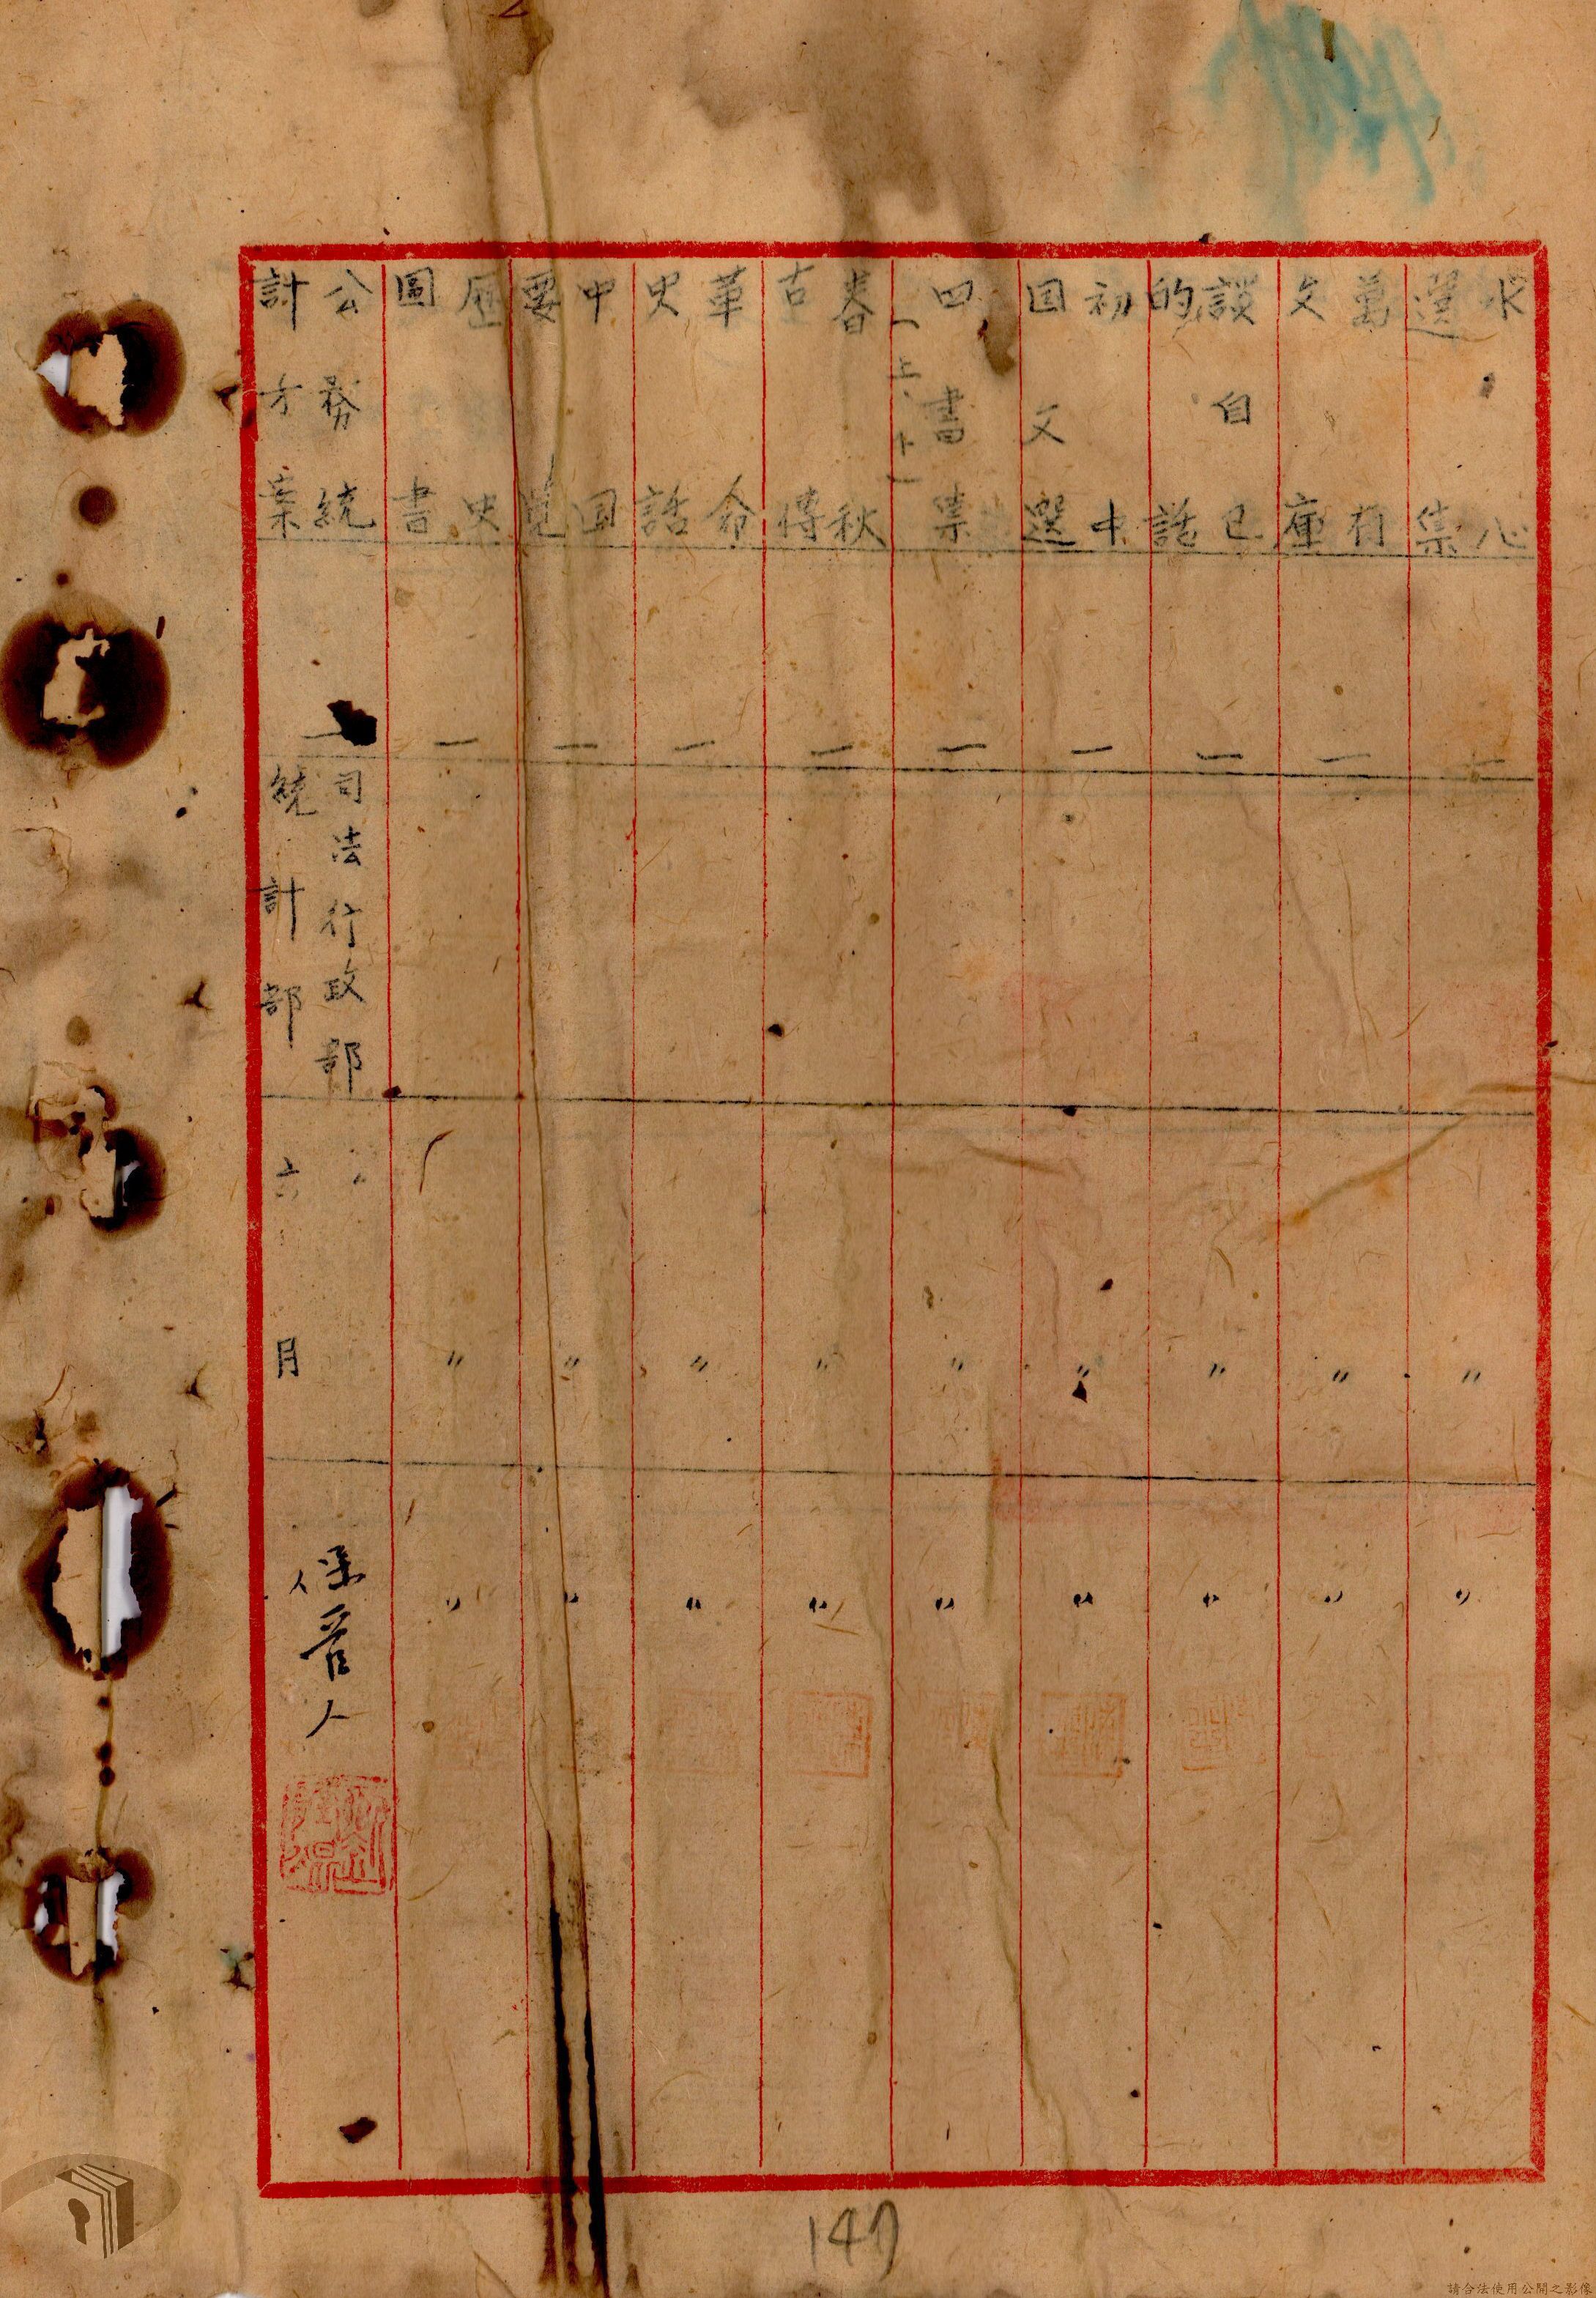 冰心
選集
一
〃
〃
萬有
文庫
一
〃
〃
談自己
的話
一
〃
〃
初中
国文選
一
〃
〃
四書集
（上、下）
一
〃
〃
春秋
古傳
一
〃
〃
革命
史話
一
〃
〃
中国
要覽
一
〃
〃
歷史
圖書
一
〃
〃
公務統
計方案
一
司法行政部
統計部
六月
保管人
147
請合法使用公開之影像